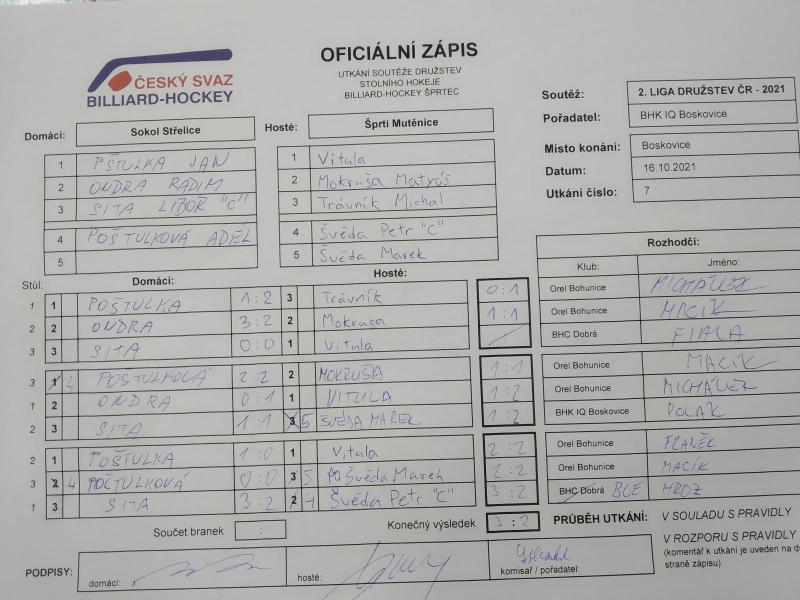 ČESKÝ SVAZ
BILLIARD-HOCKEY
OFICIÁLNÍ ZÁPIS
UTKÁNÍ SOUTĚŽE DRUŽSTEV
STOLNÍHO HOKEJE
BILLIARD-HOCKEY ŠPRTEC
Soutěž: 2. LIGA DRUŽSTEV ČR - 2021
Pořadatel: BHK IQ Boskovice
Místo konání: Boskovice
Datum: 16.10.2021
Utkání číslo: 7
Domácí: Sokol Střelice
1 PŠTULKA JAN
2 ONDRA RADIM
3 SITA LIBOR "C"
4 POŠTULKOVÁ ADÉL
5
Hosté: Šprti Mutěnice
1 Vitula
2 Mokruša Matyáš
3 Trávník Michal
4 Švéda Petr "C"
5 Švéda Marek
Stůl: Domácí: Hosté:
1 1 POŠTULKA 1:2 3 Trávník 0:1
2 2 ONDRA 3:2 2 Mokruša 1:1
3 3 SITA 0:0 1 Vitula :
3 1 4 POŠTULKOVÁ 2:2 2 MOKRUŠA 1:1
1 2 ONDRA 0:1 1 VITULA 1:2
2 3 SITA 1:1 3 5 ŠVÉDA MAREK 1:2
2 1 POŠTULKA 1:0 1 Vitula 2:2
3 2 4 POŠTULKOVÁ 0:0 3 5 Švéda Marek 2:2
1 3 SITA 3:2 2 4 Švéda Petr "C" 3:2
Rozhodčí:
Klub: Jméno:
Orel Bohunice MICHÁLEK
Orel Bohunice MACÍK
BHC Dobrá FIALA
Orel Bohunice MACÍK
Orel Bohunice MICHÁLEK
BHK IQ Boskovice POLÁK
Orel Bohunice FRANĚK
Orel Bohunice MACÍK
BHC Dobrá BCE HROZ
Součet branek :
Konečný výsledek 3:2
PRŮBĚH UTKÁNÍ: V SOULADU S PRAVIDLY
V ROZPORU S PRAVIDLY
(komentář k utkání je uveden na d
straně zápisu)
PODPISY: domácí: hosté: komisař / pořadatel: